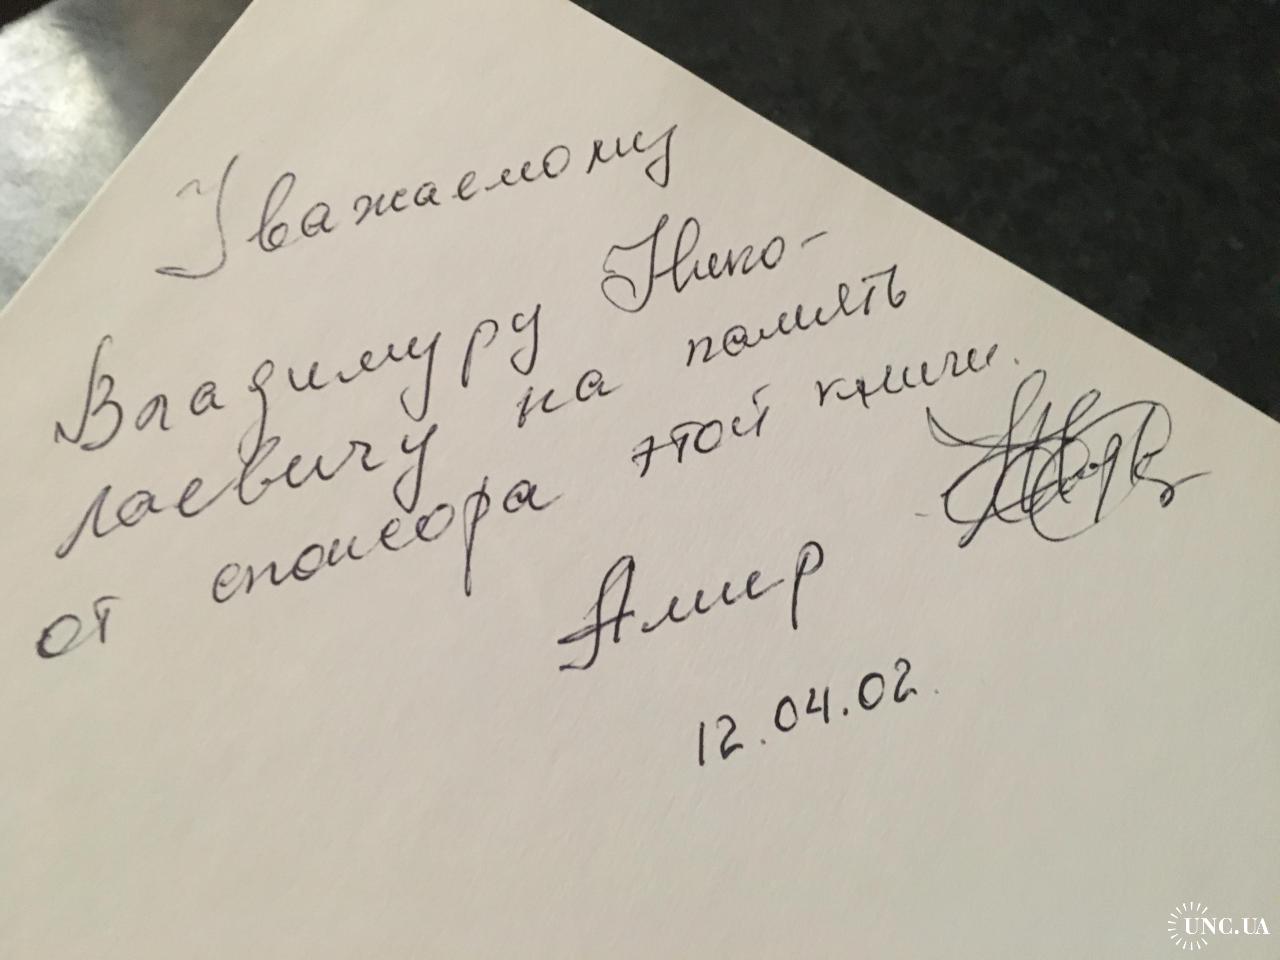 Уважаемому
Владимуру Нико-
лаевичу на память
от спонсора этой книги.
Амир
12.04.02
UNC.UA